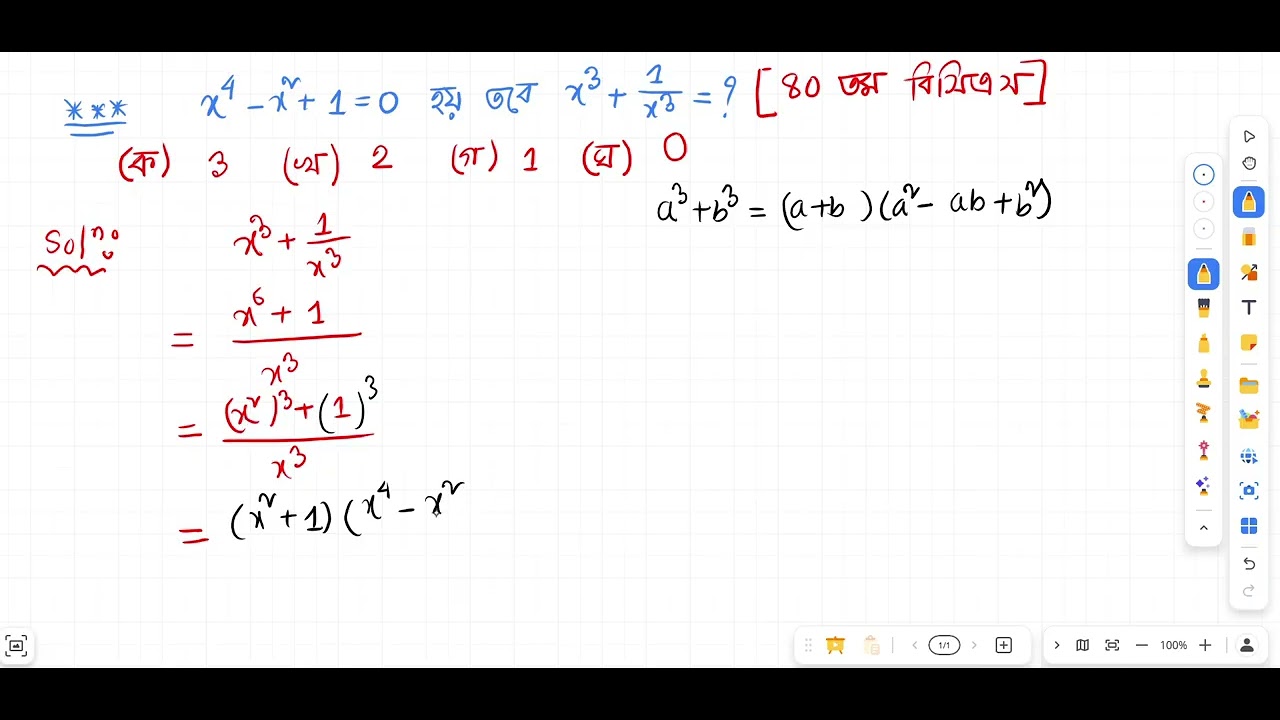 *** x⁴ - x² + 1 = 0 হয় তবে x³ + 1/x³ = ? [80 তম বিসিএস]
(ক) 3 (খ) 2 (গ) 1 (ঘ) 0
a³ + b³ = (a + b) (a² - ab + b²)
Solⁿ: x³ + 1/x³
= x⁶ + 1 / x³
= (x²)³ + (1)³ / x³
= (x² + 1) (x⁴ - x²
1/1
100%